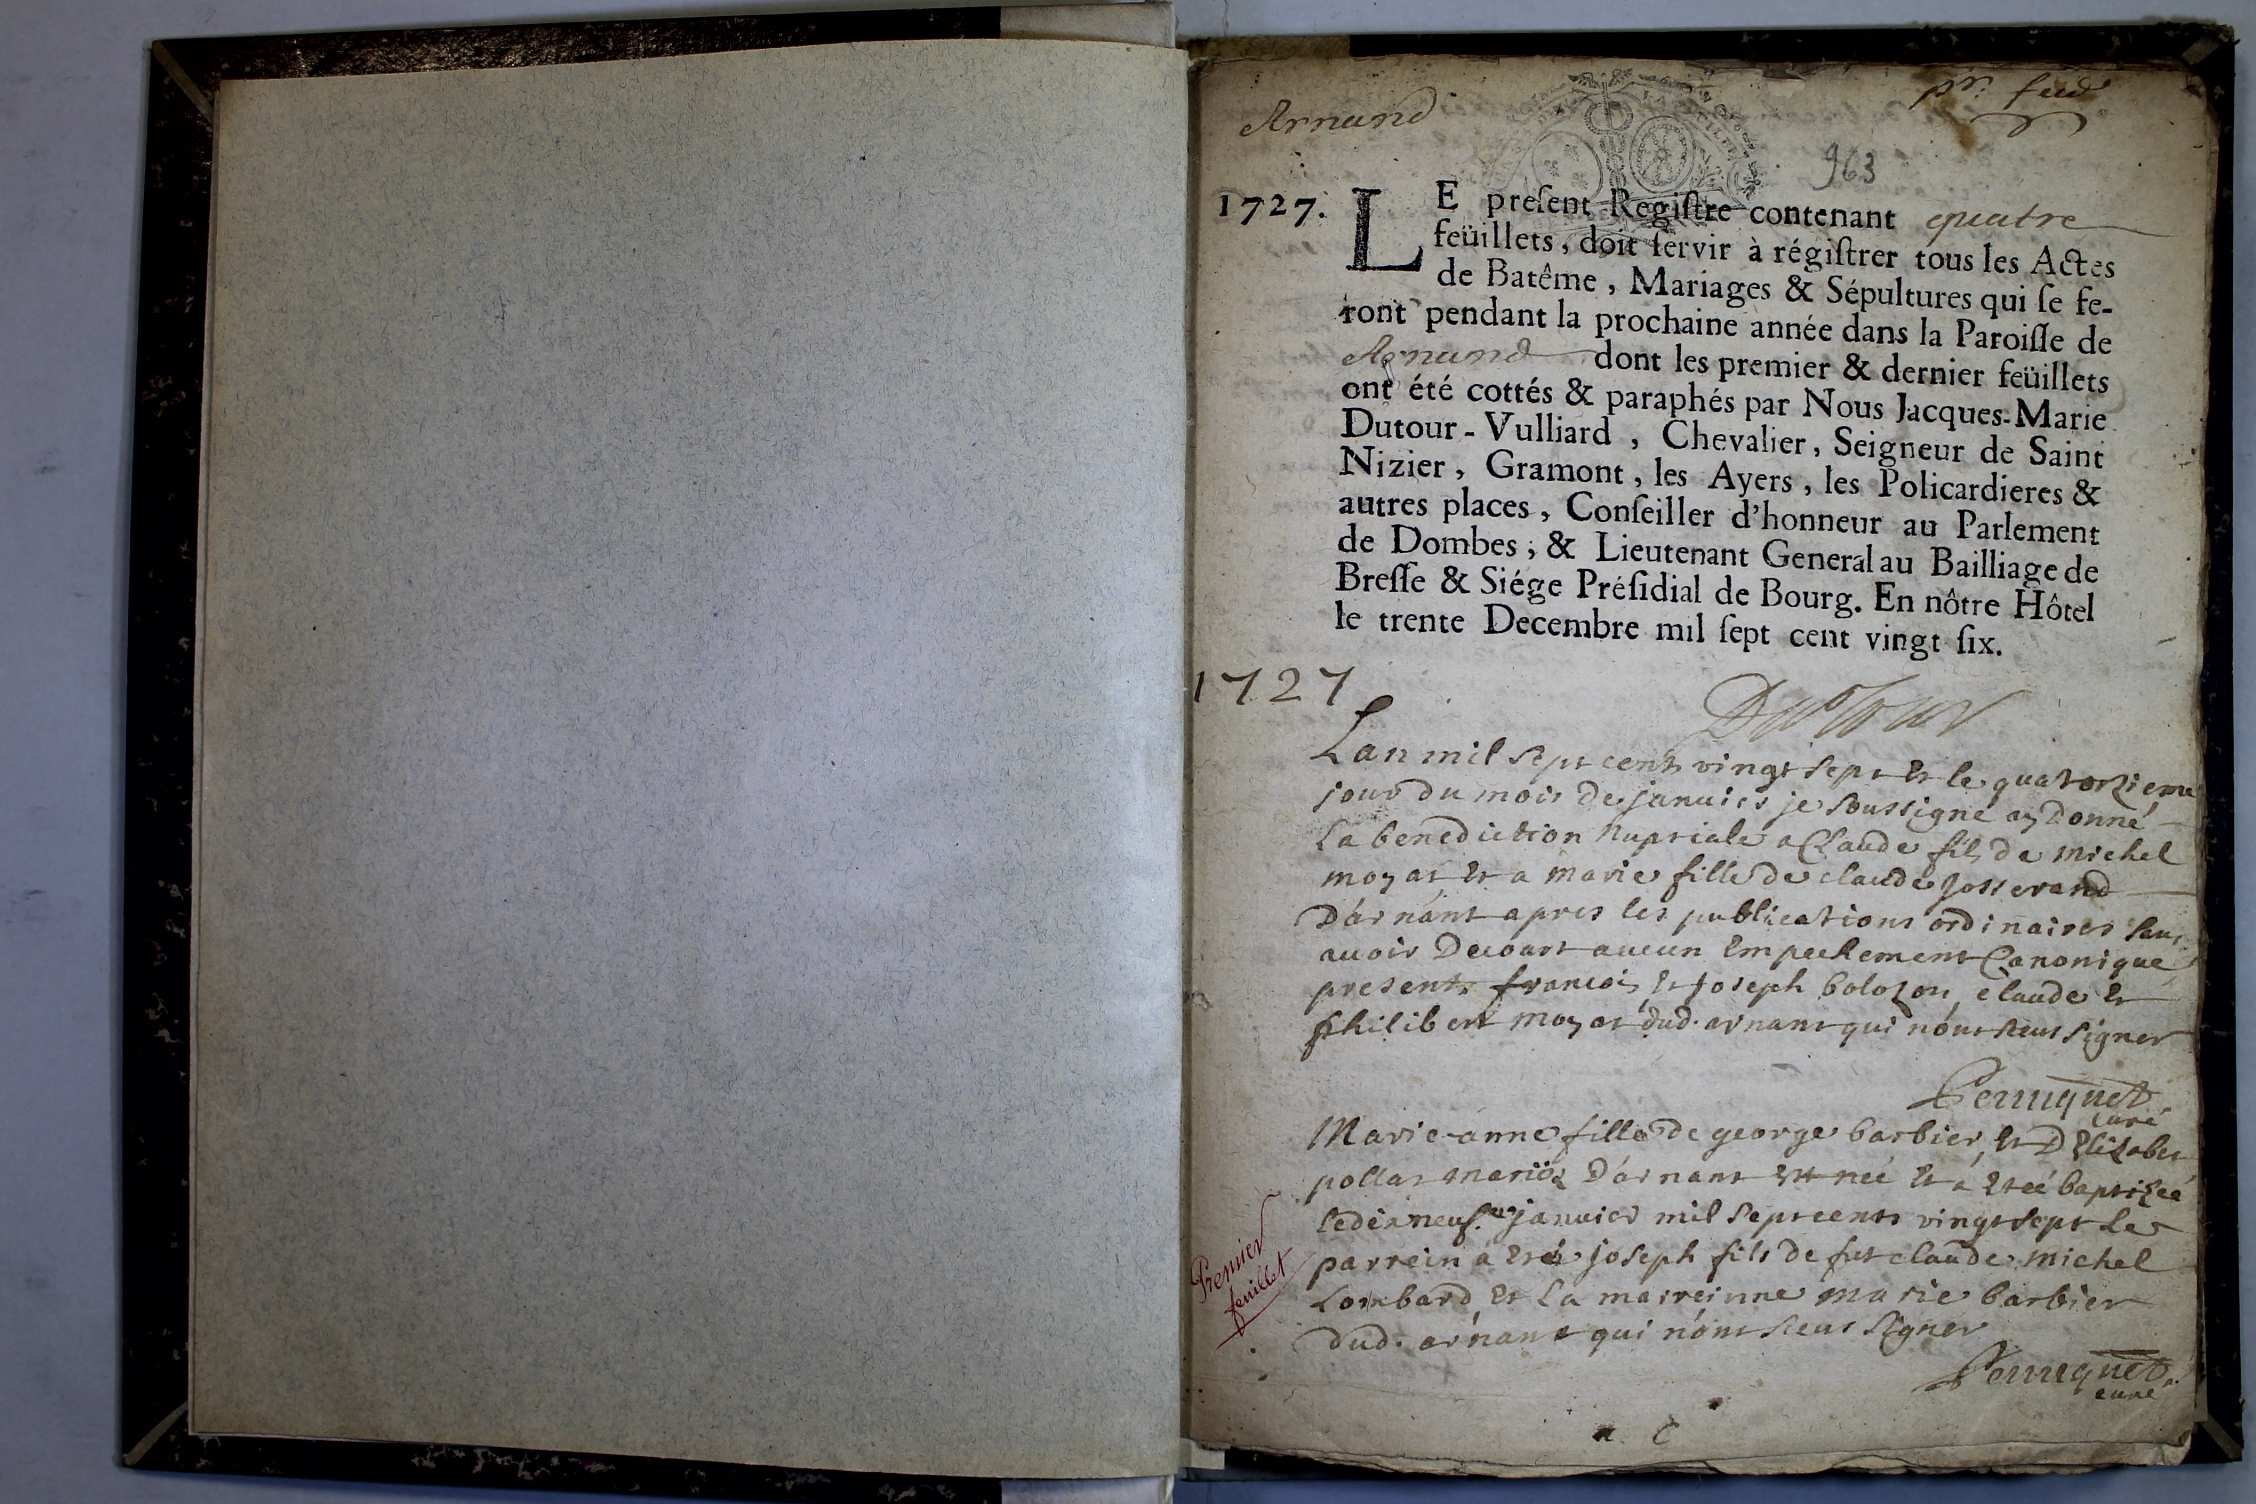 Arnand
pr. feuil
963
1727.
LE preſent Regiſtre contenant quatre
feüillets, doit ſervir à régiſtrer tous les Actes
de Batême, Mariages & Sépultures qui ſe fe-
ront pendant la prochaine année dans la Paroiſſe de
Arnand dont les premier & dernier feüillets
ont été cottés & paraphés par Nous Jacques-Marie
Dutour-Vulliard, Chevalier, Seigneur de Saint
Nizier, Gramont, les Ayers, les Policardieres &
autres places, Conſeiller d'honneur au Parlement
de Dombes, & Lieutenant General au Bailliage de
Breſſe & Siége Préſidial de Bourg. En nôtre Hôtel
le trente Decembre mil ſept cent vingt ſix.
1727
Dutour
Lan mil sept cents vingt sept et le quatorzieme
jour du mois de janvier je soussigné ay donné
la benediction nuptiale a Claude fils de michel
moyat et a marie fille de claude josserand
d'arnant apres les publications ordinaires sans
avoir decouvert aucun empechement Canonique
presents francois et joseph bolozon, claude et
philibert moyat dud. arnant qui n'ont sceut signer
curé
Marie-anne fille de george barbier, et D'Elizabet
pollat mariéz d'arnant est neé et a eteé baptizeé
le dixneuf.e janvier mil sept cents vingt sept le
parrein a eté joseph fils de fut claude michel
Lombard et la marreinne marie barbier
dud. arnant qui n'ont sceut signer
curé
Premier
feuillet